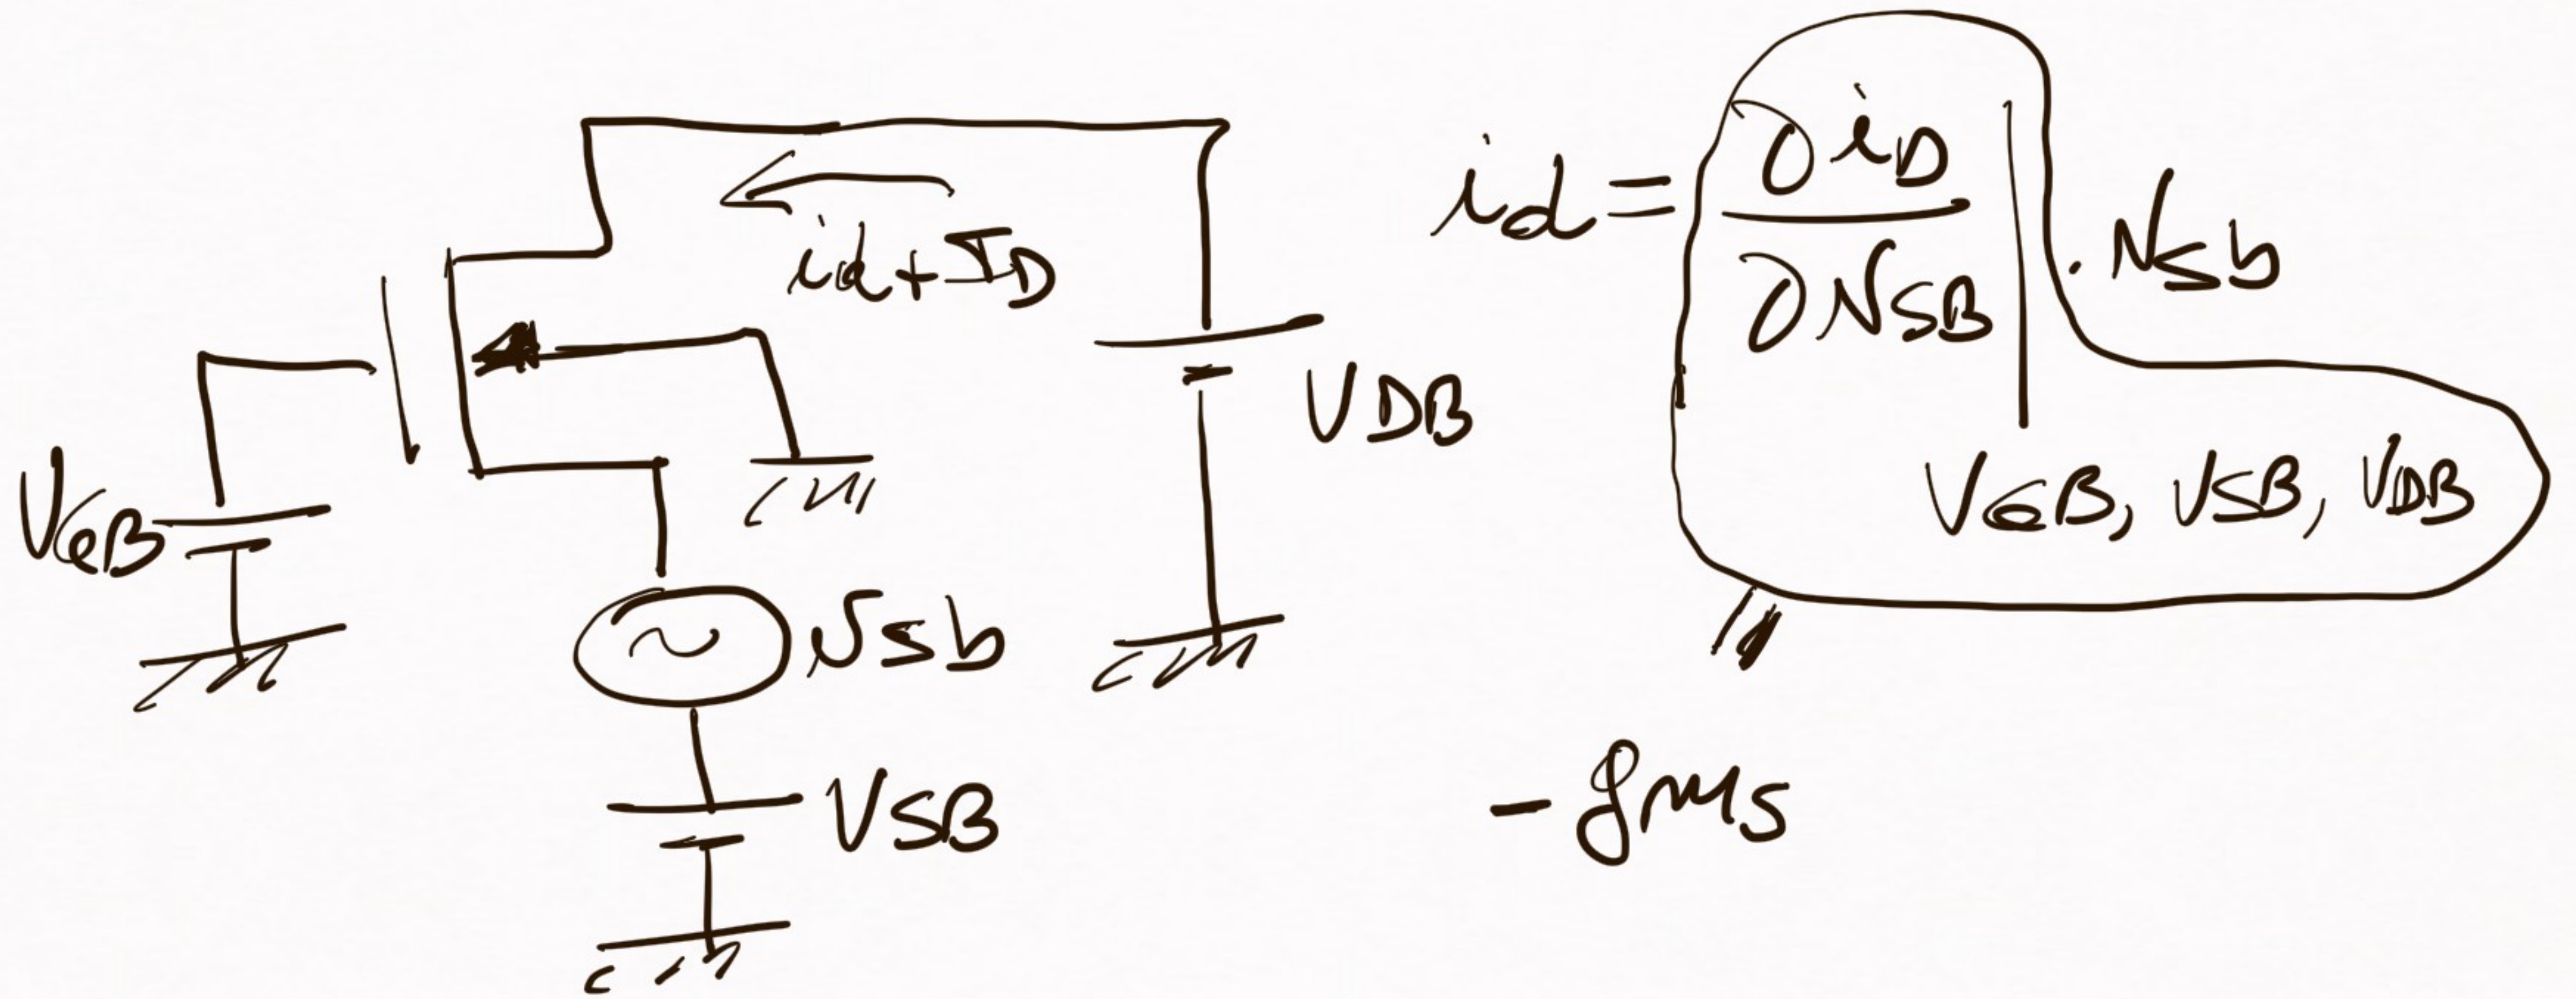 id + ID
VGB
VDB
vsb
VSB
id = ∂iD / ∂vSB | VGB, VSB, VDB · vsb
= -gms